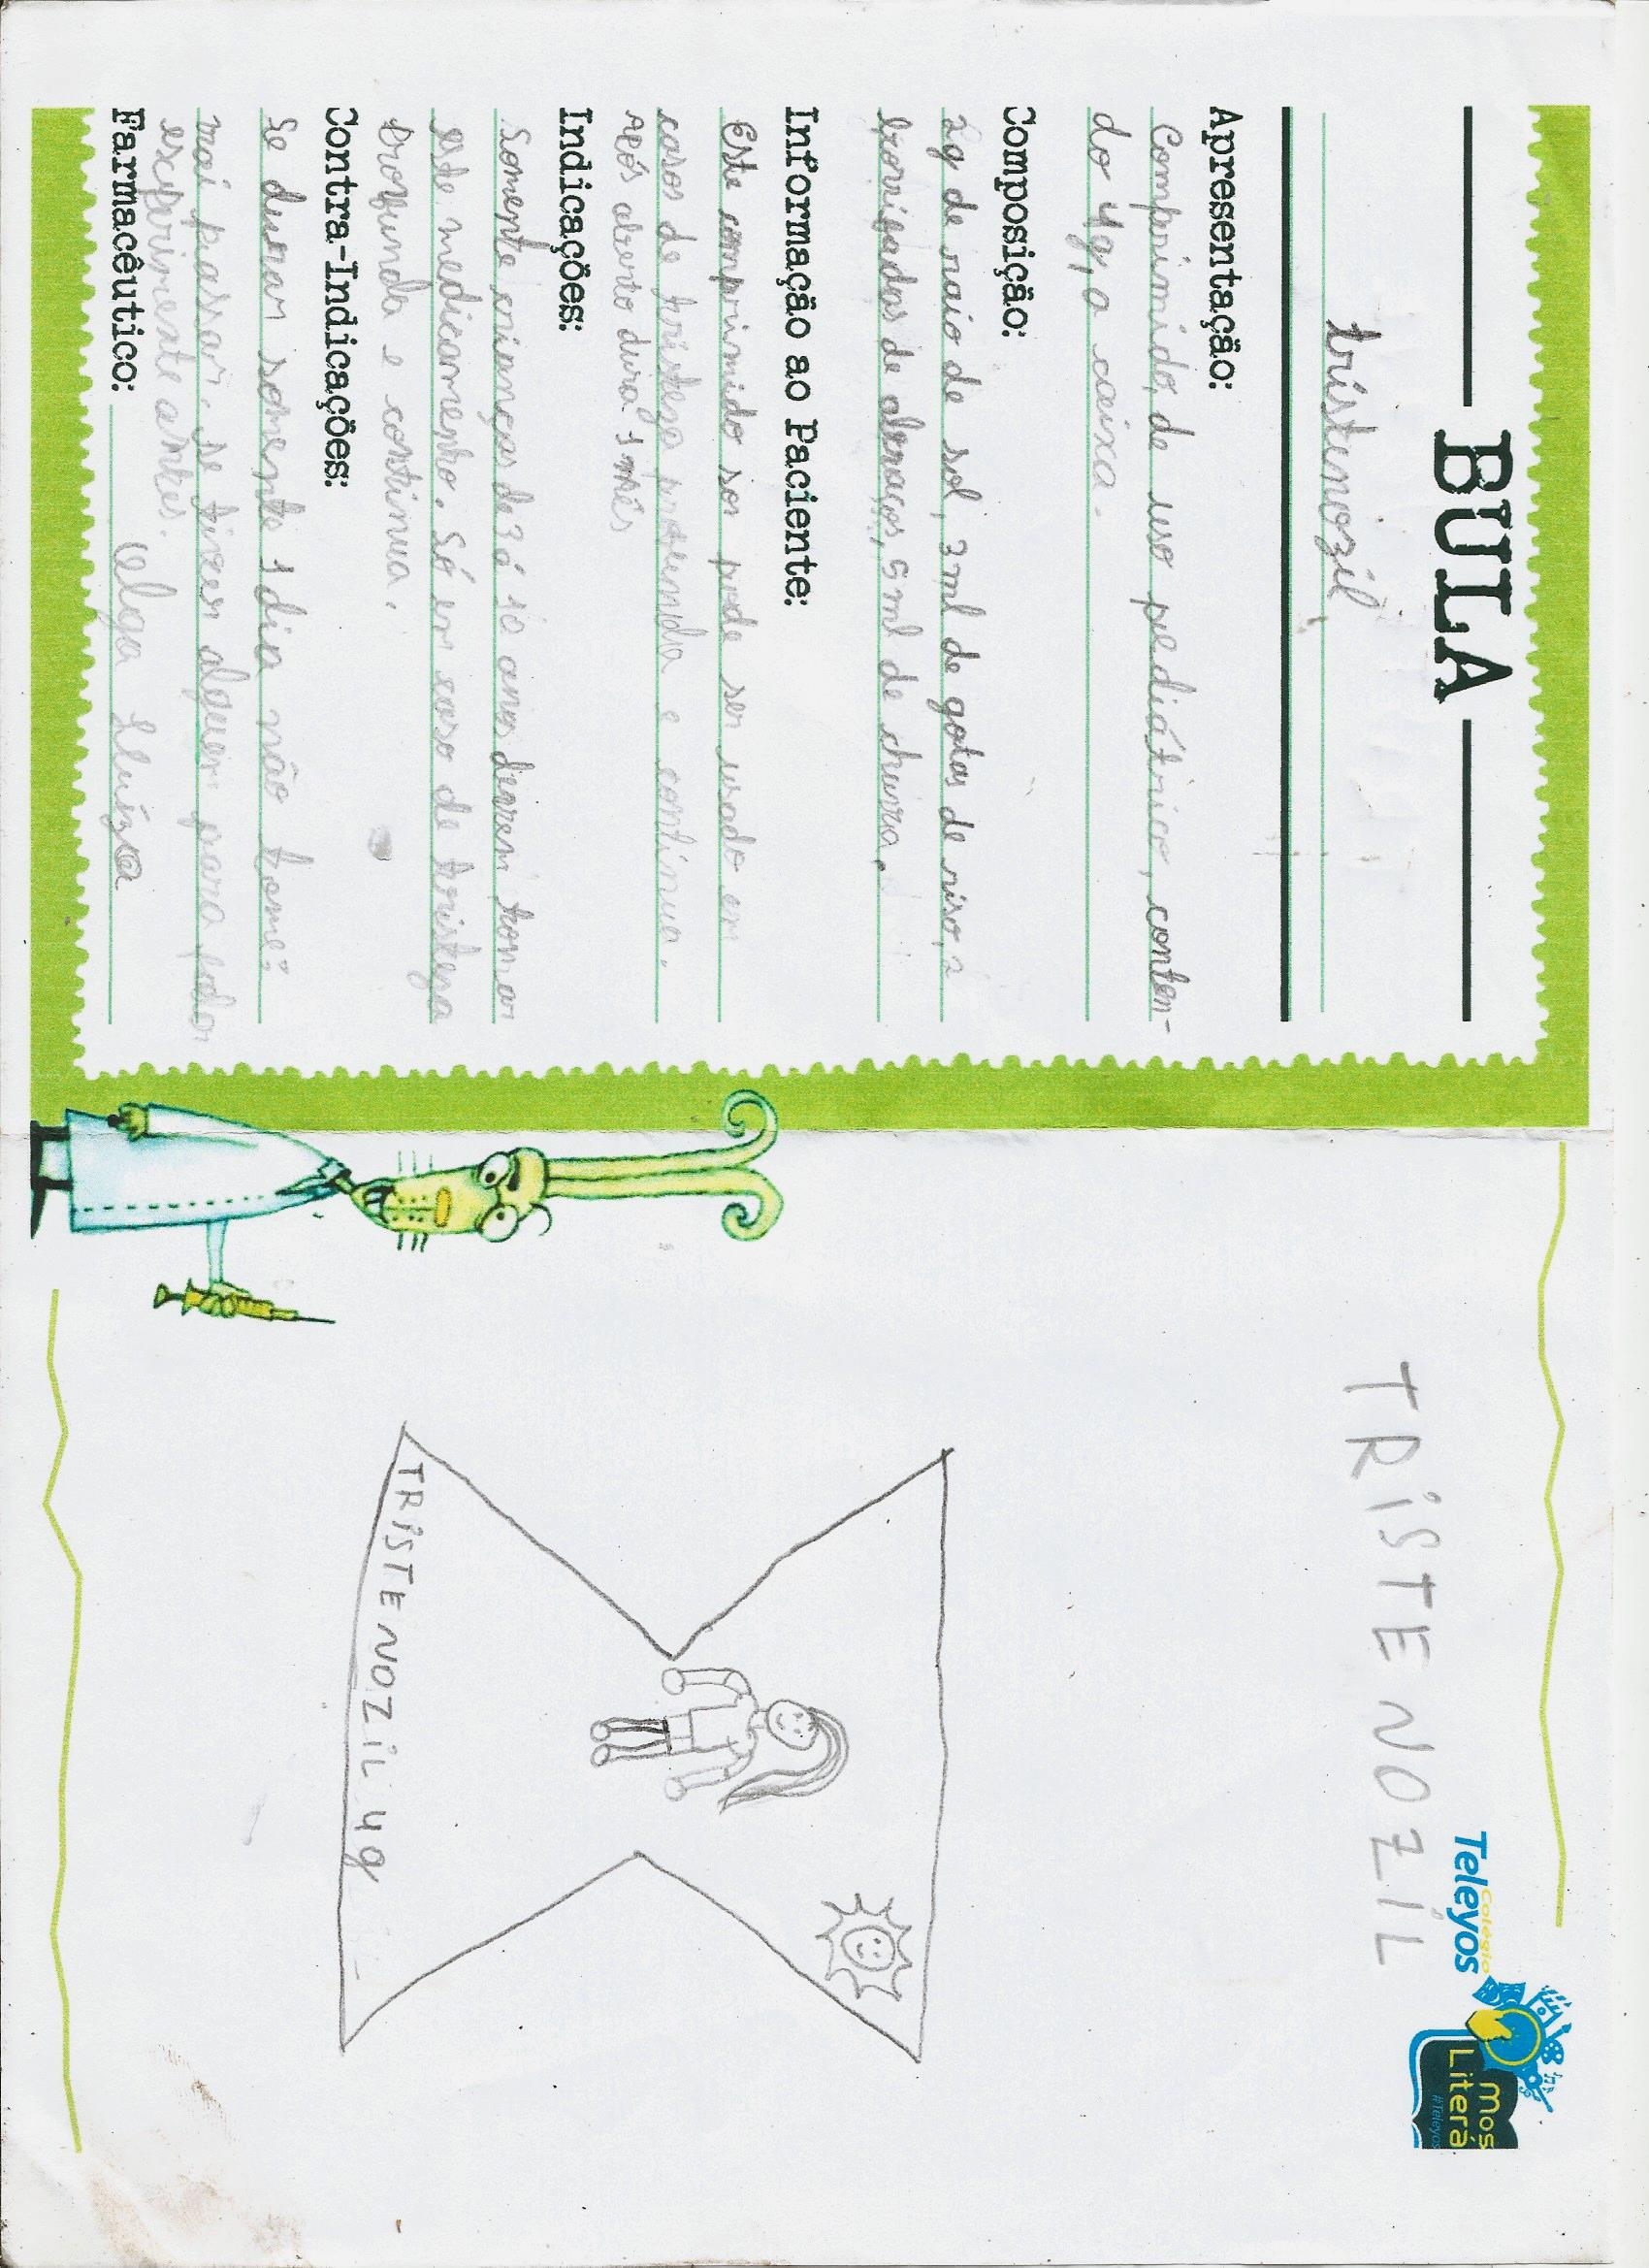 BULA
tristenozil
Apresentação:
Comprimido, de uso pediátrico, conten-
do 4g, a caixa.
Composição:
2g de raio de sol, 3 ml de gotas de riso, 2
trovoadas de abraços, 5 ml de chuva.
Informação ao Paciente:
Este comprimido so pode ser usado em
casos de tristeza profunda e continua.
Após aberto dura 1 mês
Indicações:
Somente crianças de 3 á 10 anos devem tomar
este medicamenho. Só em caso de tristeza
profunda e continua.
Contra-Indicações:
Se durar somente 1 dia não tome:
mai passar. Se fizer alguem para
experimente antes.
Farmacêutico: Olga Luíza
TRiSTENOZiL
Colégio
Teleyos
Mos
Literá
#Teleyos
TRiSTENOZiL 4g